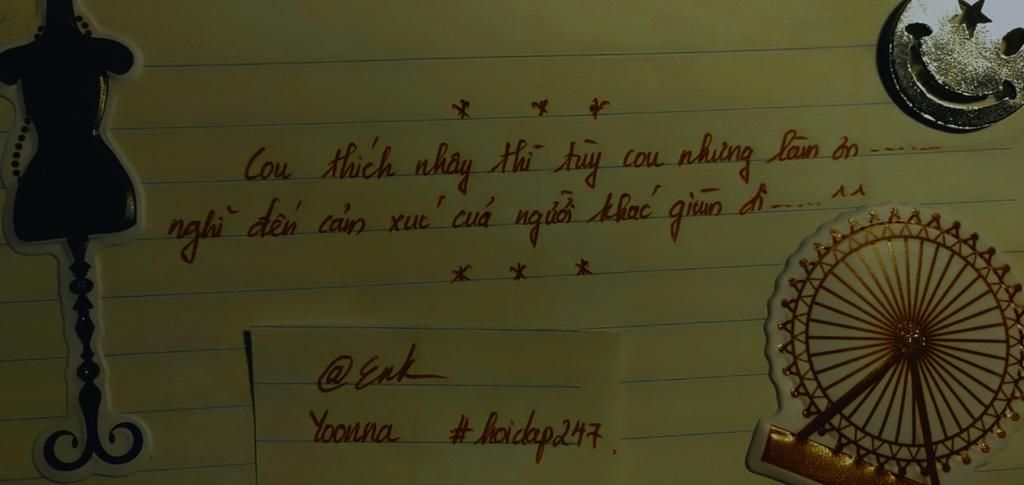 * * *
Cou thích nhây thì tùy cou nhưng làm ơn .......
nghĩ đến cảm xuć cuả người khać giùm đi...... ^^
* * *
@Enk
Yoonna #hoidap247.